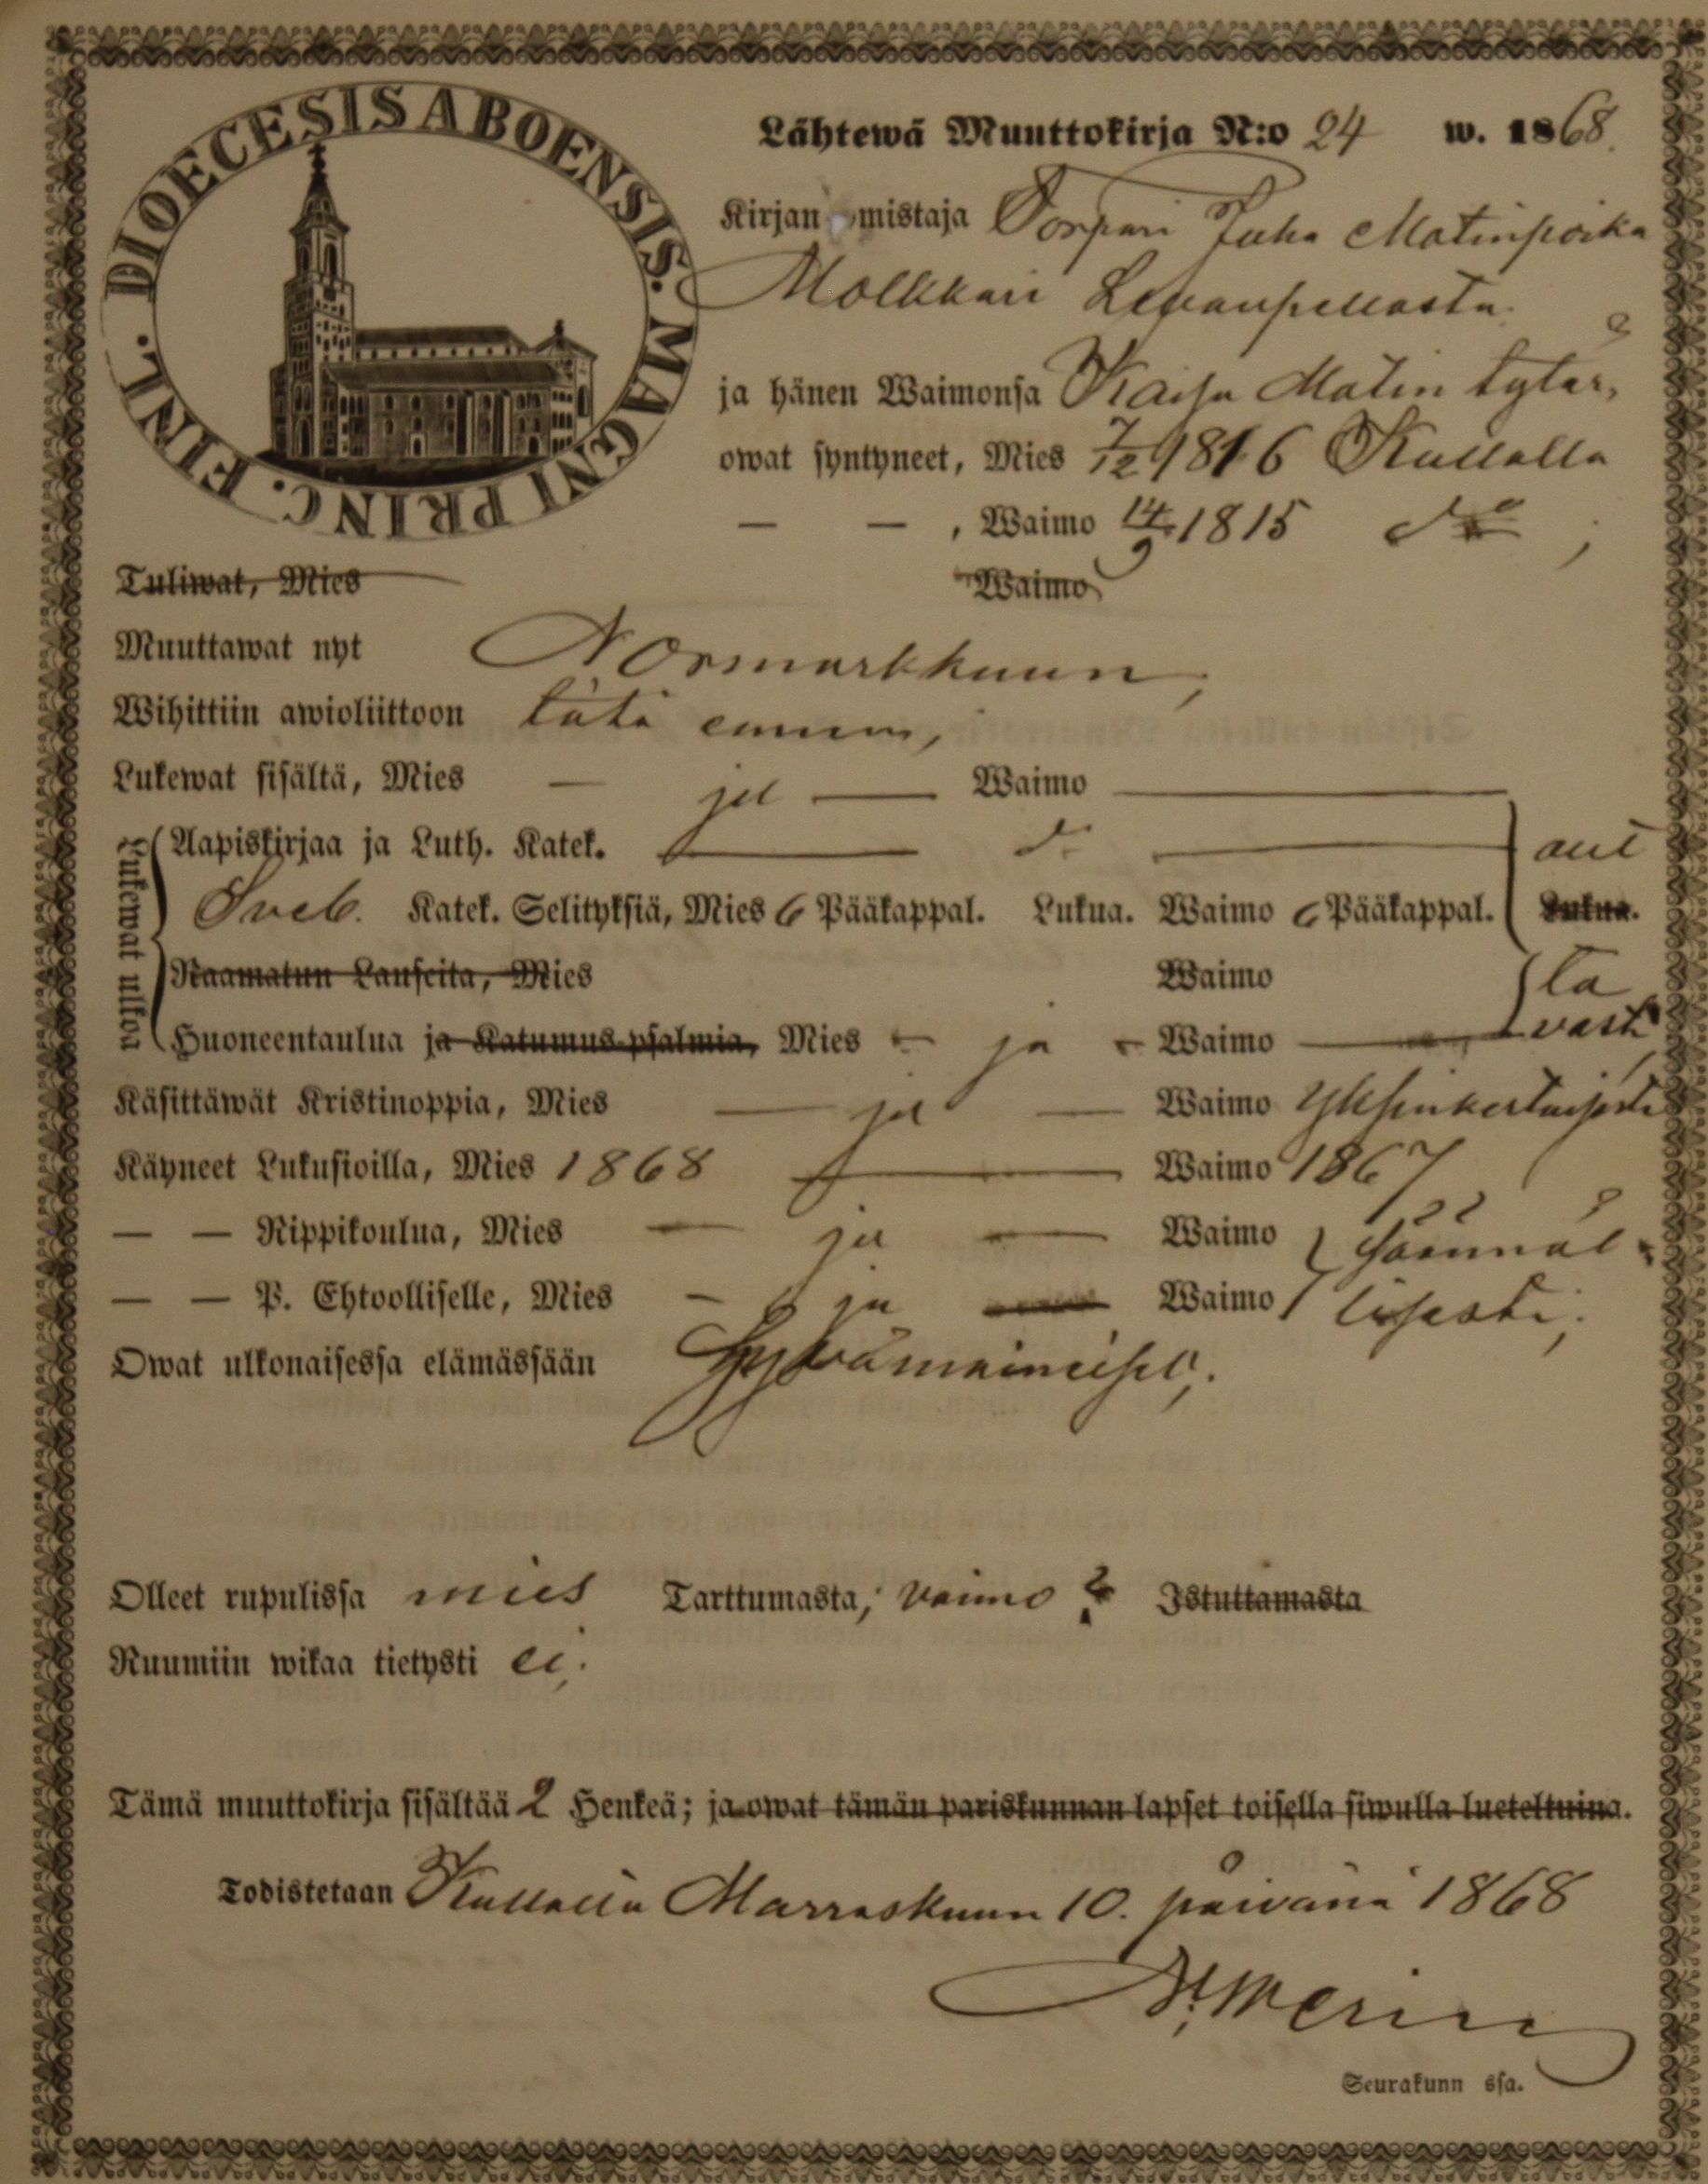 DIOECESIS ABOENSIS. MAGNI PRINC. FINL.
Lähtewä Muuttokirja N:o 24 w. 1868.
Kirjan omistaja Torpari Juha Matinpoika
Molkkari Levanpellosta.
ja hänen Waimonsa Kaisa Matin tytär,
owat syntyneet, Mies 7/12 1816 Kullalla
— — , Waimo 14/9 1815 do ;
Tuliwat, Mies Waimo
Muuttawat nyt Normarkkuun,
Wihittiin awioliittoon tätä ennen,
Lukewat sisältä, Mies — ja — Waimo —
Lukewat ulkoa
Aapiskirjaa ja Luth. Katek. — d:o — aut
Sveb. Katek. Selityksiä, Mies 6 Pääkappal. Lukua. Waimo 6 Pääkappal. Lukua.
Raamatun Lauseita, Mies Waimo ta
Huoneentaulua ja Katumus-psalmia, Mies - ja - Waimo — vasti
Käsittäwät Kristinoppia, Mies — ja — Waimo yksinkertaisesti
Käyneet Lukusioilla, Mies 1868 — Waimo 1867
— — Rippikoulua, Mies — ja — Waimo säännöl-
— — P. Ehtoolliselle, Mies - ja — Waimo lisesti;
Owat ulkonaisessa elämässään hyvämaineiset;
Olleet rupulissa mies Tarttumasta; vaimo ? Istuttamasta
Ruumiin wikaa tietysti ei;
Tämä muuttokirja sisältää 2 Henkeä; ja owat tämän pariskunnan lapset toisella siwulla lueteltuina.
Todistetaan Kullalla Marraskuun 10. päivänä 1868
Seurakunn ssa.